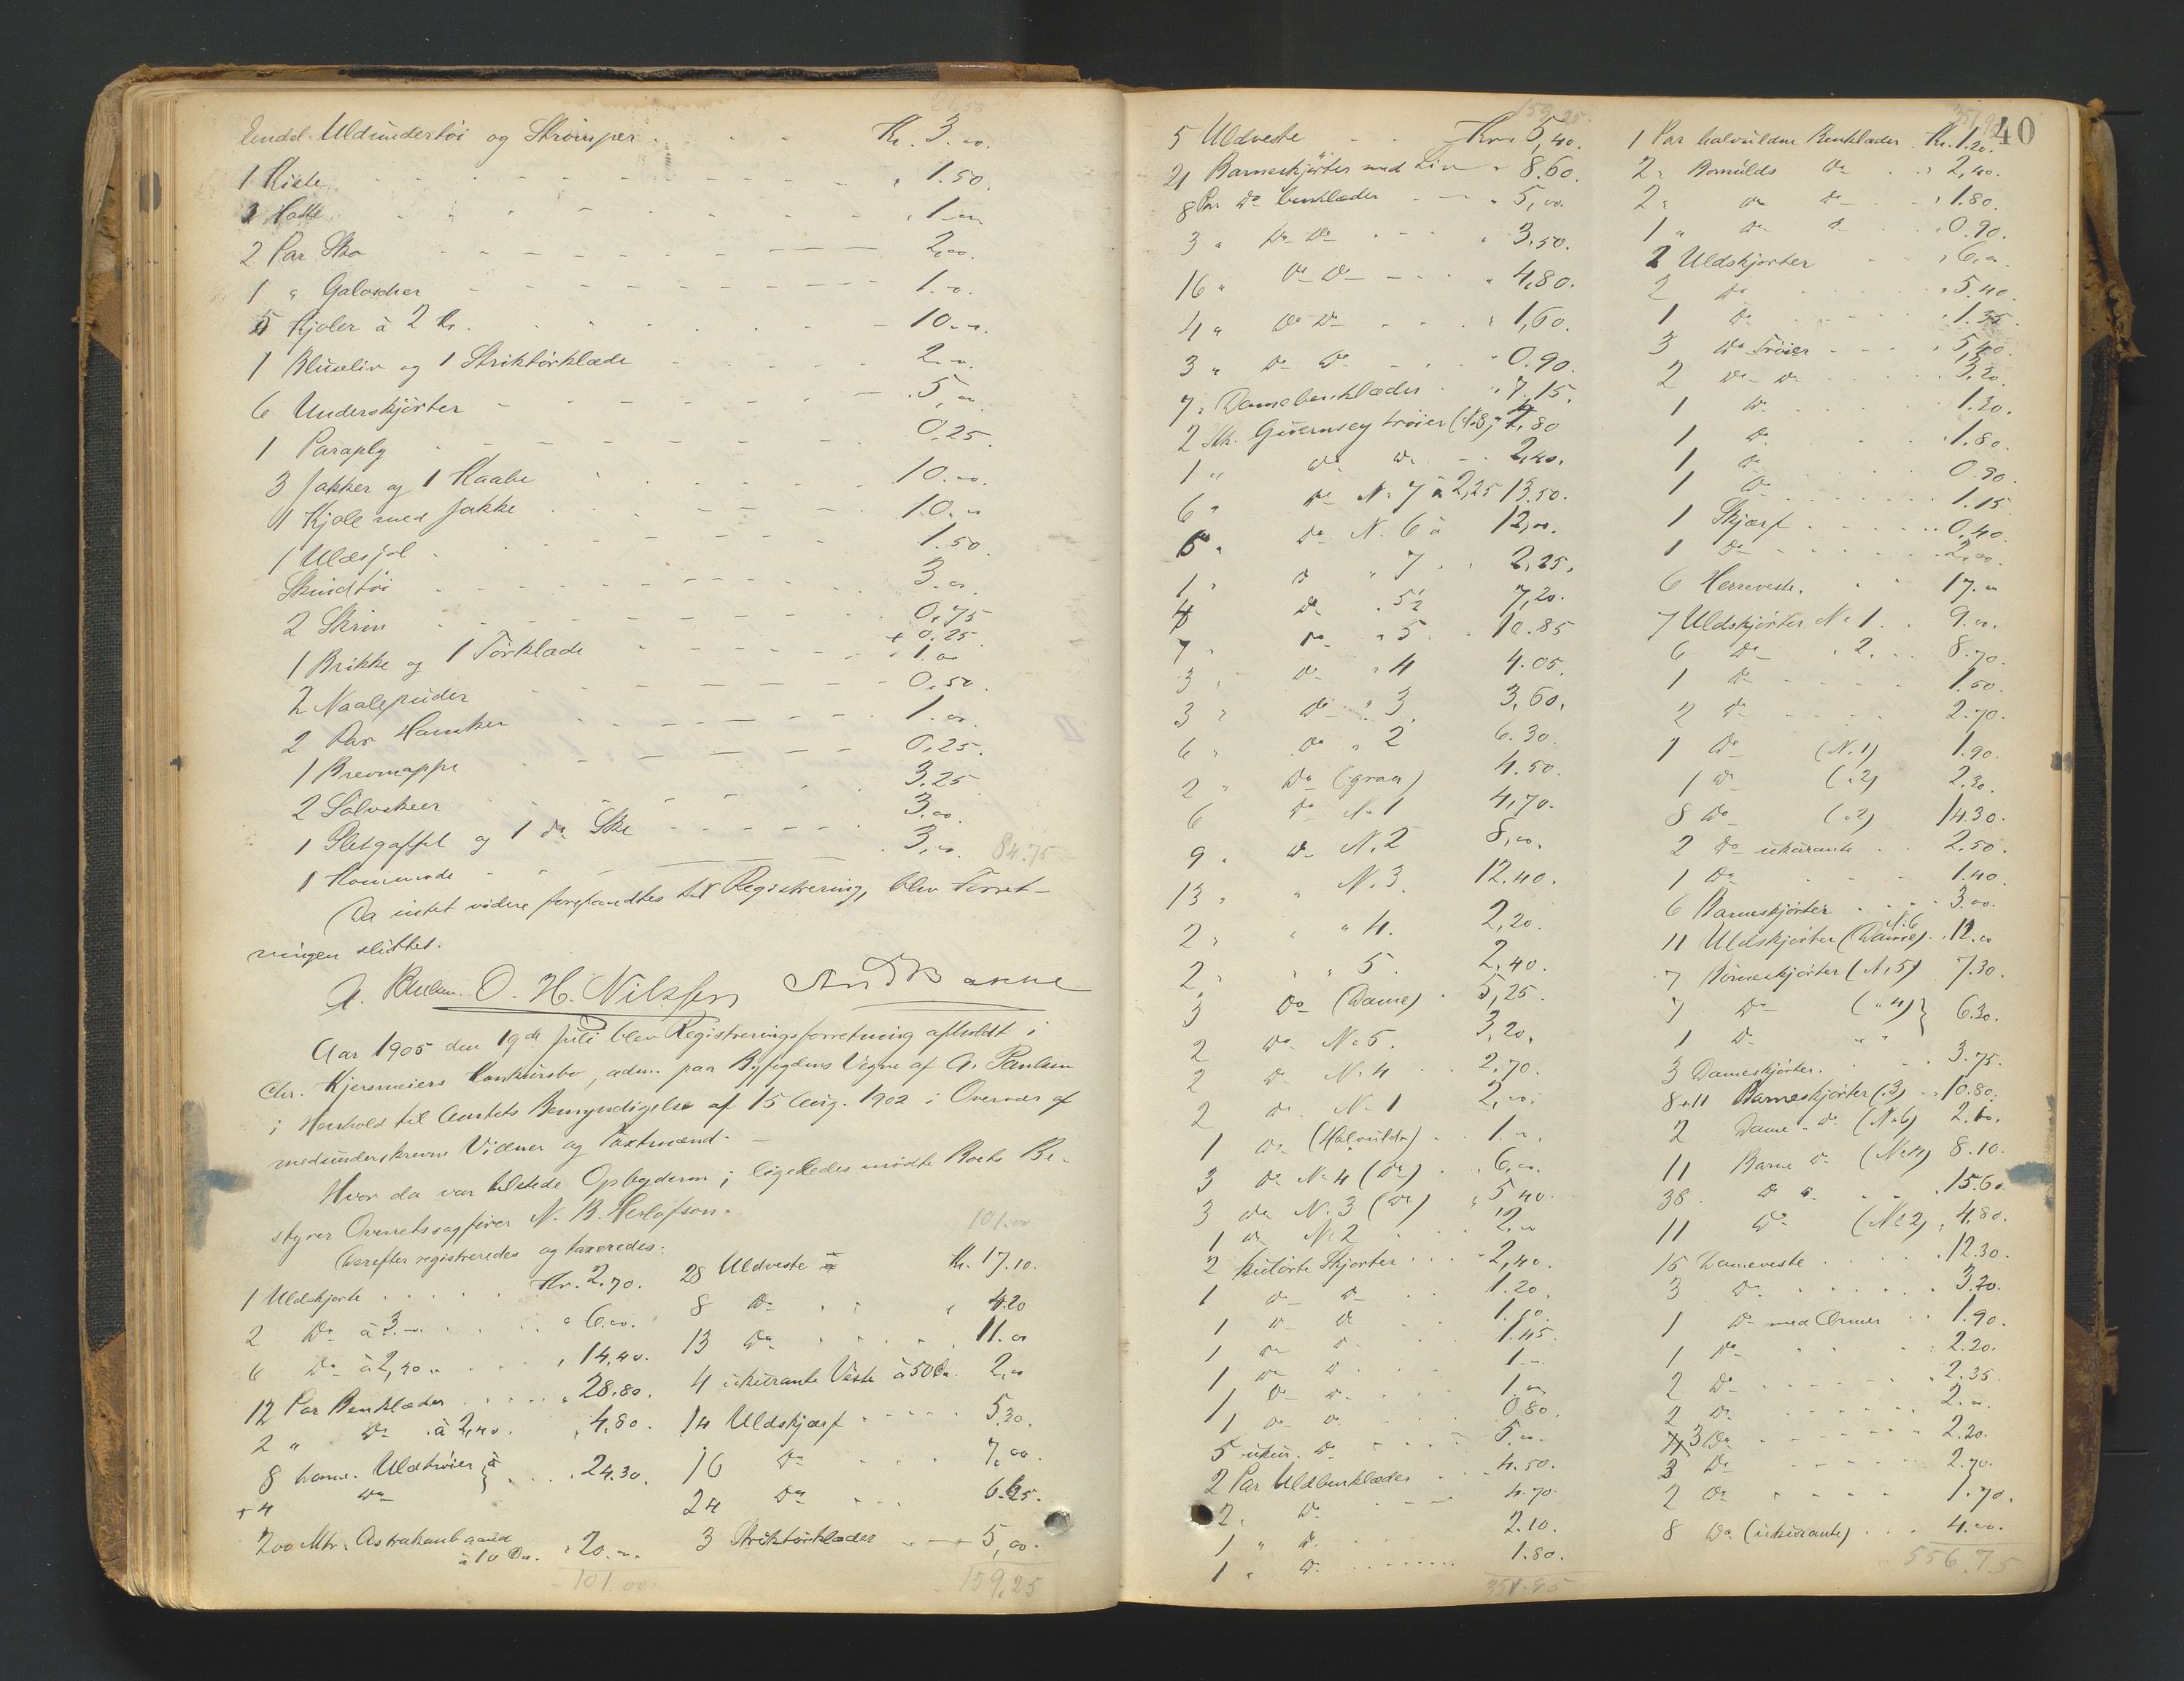 21,50
Endel Uldundertøi og Strømper . . . Kr. 3.00.
1 Kiste " 1.50.
3 Hatte " 1.00
2 Par Sko 2,00.
1 " Galoscher 1.00.
5 Kjoler à 2 Kr. 10.00.
1 Bluseliv og 1 Striktørklæde 2.00.
6 Underskjørter 5,00.
1 Paraply 0,25.
3 Jakker og 1 Kaabe 10.00.
1 Kjole med Jakke 10.00
1 Uldsjal 1.50.
Skindtøi 3.00
2 Skrin 0,75
1 Brikke og 1 Tørklæde + 0.25
2 Naalepuder 1.00
2 Par Hansker 0,50.
1 Brevmappe 1.00.
2 Sølvskeer 0,25.
1 Pletgaffel og 1 do Ske 3,25
3,00.
1 Kommode 3,00. 84.75
Da intet videre forefandtes til Registrering, blev Forret-
ningen sluttet.
A. Paulsen. O. H. Nilssen
Aar 1905 den 19de Juli blev Registreringsforretning afholdt i
Chr. Kjersmeiers Konkursbo, adm. paa Byfogdens Vegne af A. Paulsen
i Henhold til Amtets Bemyndigelse af 15 Aug. 1902 i Overvær af
medunderskrevne Vidner og Taxtmænd. —
Hvor da var tilstede Opbyderen; ligeledes mødte Boets Be-
styrer Overretssagfører N. B. Herlofson.
Derefter registreredes og taxeredes: 101.00
1 Uldskjorte . . . . . Kr. 2.70.
2 Do à 3.00 . . . " 6.00.
6 Do à 2,40 . . . " 14,40.
12 Par Benklæder . . . . " 28.80.
2 " Do à 2,40. " 4,80.
8 Uldtrøier à
+ 4 Do . . . 24.30.
200 Mtr. Astrakanbaand
à 10 Øre. " 20.00.
101.00
28 Uldveste Kr. 17.10.
8 Do " 4.20
13 Do . . . . 11.00
4 ukurante Veste à 50 Øre. 2,00
14 Uldskjærf . . . . 5.30.
16 Do . . . 7,00
24 Do . . . 6.25.
3 Striktørklæder 5,00.
159,25
159,25.
5 Uldveste Kr. 5,40.
21 Barneskjørter med Liv " 8.60.
8 Par Do benklæder " 5,00.
3 " Do Do . . . " 3,50.
16 " Do Do " 4,80.
4 " Do Do . . . " 1,60.
3 " Do Do . . " 0.90.
7 " Damebenklæder . " 7.15.
2 Stk. Guernsey trøier (N. 8) " 4,80
1 " Do Do . . 2,40.
6 " Do No 7 à 2,25 13.50.
6 " Do N. 6 à 12,00.
1 " Do " 7 . . 2,25.
4 Do . 5½ 7,20.
7 " Do " 5 . . 10.85
3 " Do " 4 4.05.
3 " Do " 3. 3,60.
6 " Do " 2 6.30.
2 " Do (graa) 4.50.
6 Do No 1 4,70.
9 . Do N. 2 8,00.
13 " " N. 3. 12.40.
2 " " " 4. 2,20.
2 " " " 5. 2,40.
3 Do (Dame) . 5,25.
2 Do No 5. 3,20.
2 Do N. 4 . . 2.70.
2 Do. No 1 2,00.
1 Do (Halvulds) . . 1.00.
3 Do No 4 (Do) . . 6,00.
3 Do N. 3 (Do) " 5 40.
1 Do No 2 2.00
2 kulørte Skjorter . . . 2,40.
1 Do Do . . 1.20.
1 Do Do 1.10.
1 Do Do 1.45.
1 Do Do . . . 1.00
1 Do Do . . . 1.00
1 Do Do . . . 0.80.
5 ukur. Do 5.00.
2 Par Uldbenklæder . . . 4.50.
2 " Do 4.70.
1 " Do 2.10.
1 " Do . . . . 1.80.
351.95
351.95
40
1 Par halvuldne Benklæder . Kr. 1.20.
2 " Bomulds Do . . " 2,40.
2 " Do Do " 1.80.
1 " Do Do . . . 0.90.
2 Uldskjorter " 6,00.
2 Do " 5.40
1 Do . . . . . " 1.35.
3 Do Trøier . . . " 5,40.
2 Do Do . . . . 3,20.
1 Do . . . . 1.30.
1 Do . . . . " 1.80.
1 Do . . . . 0.90
1 Do . . . . 1.15
1 Skjærf . . . . 0,40.
1 Do . . . . 2,00.
6 Herreveste. . . 17.00
7 Uldskjørter No 1 . . 9.00.
6 Do " 2. . . 8.70.
1 Do . . . . 1.50.
2 Do . . . . 2.70.
1 Do (N. 1) 1.90.
1 Do ( " 2) 2.30.
8 Do ( " 2) 14.30.
2 Do ukurante . . 2.50.
1 Do . . . 1.40.
6 Barneskjørter . . . . 3.00.
11 Uldskjørter (Dame) N. 6 . 12.00
7 Børneskjørter (N. 5) 7.30.
7 Do ( " 4) }
1 Do " " } 6.30.
3 Dameskjørter. . . . 3.75.
8+11 Barneskjørter ( " 3) . . 10.80.
2 Dame - Do (No 6)
11 Barne Do (No 4) 8.10.
38. Do " . . . 15.60
11 Do (No 2) " 4,80.
15 Dameveste . . . . . 12.30.
3 Do . . . . . . . 3.20.
1 Do med Ærmer . . 1.90.
1 Do . . . : 2.20.
2 Do . . . . . 2.35.
2 Do . . . . . . 2.00.
3 Do . . . . . . 2.20.
3 Do . . . . . 2.70.
2 Do . . . . . 1.70.
8 Do (ukurante) . . . 4.00.
556.75